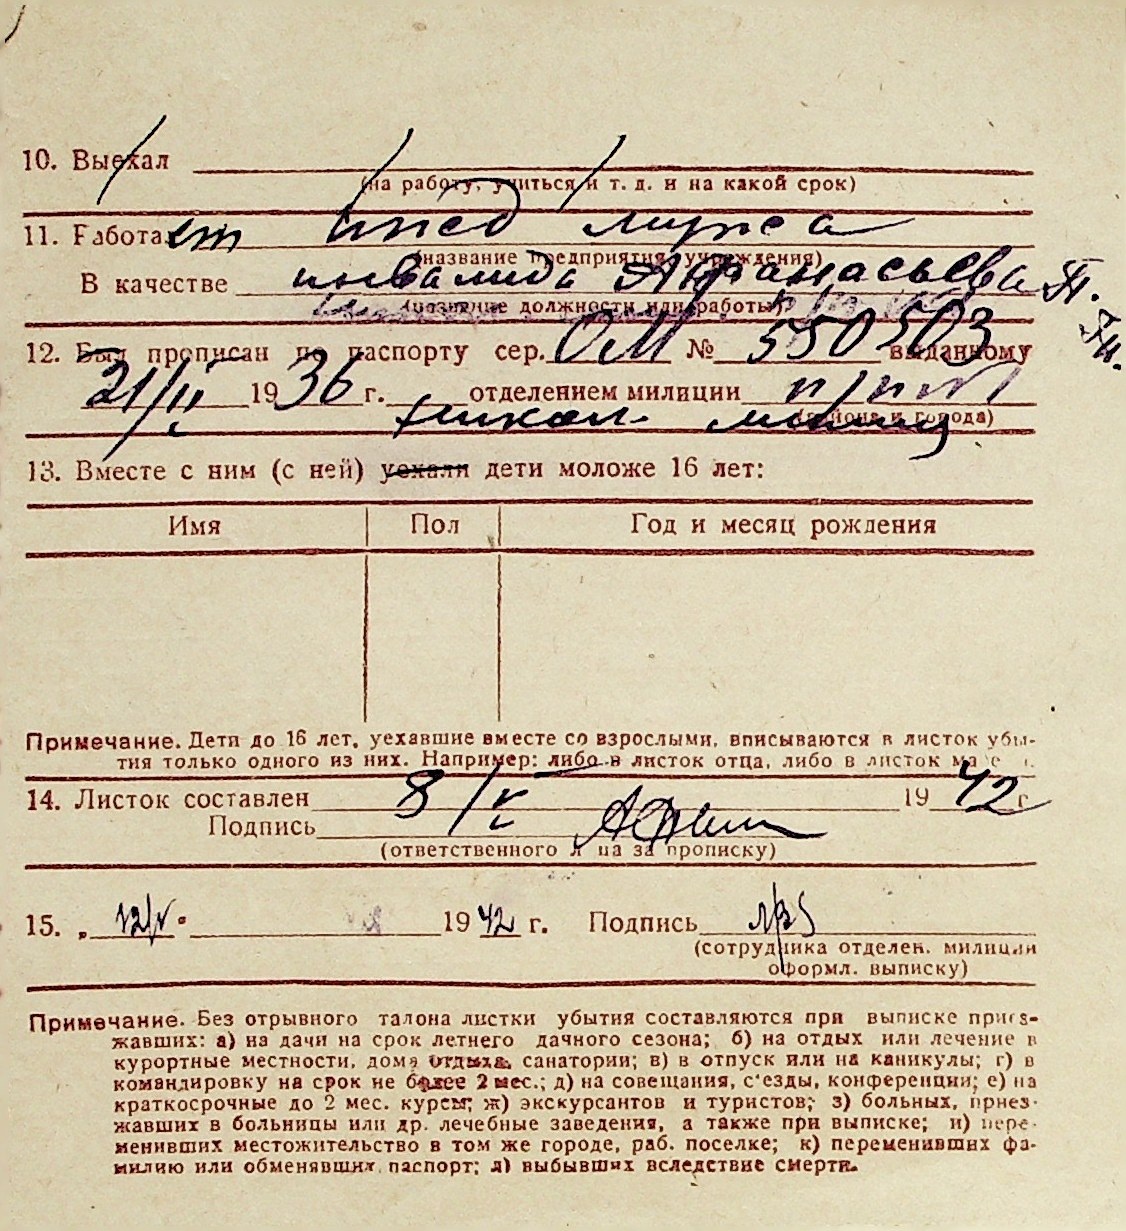 10. Выехал
(на работу, учиться и т. д. и на какой срок)
11. Работает
(название предприятия, учреждения)
В качестве инвалида Афанасьева П.
(название должности или работы)
12. Был прописан по паспорту сер. ОМ № 550503 выданному
21/II 1936 г. отделением милиции
(района и города)
13. Вместе с ним (с ней) уехали дети моложе 16 лет:
Имя Пол Год и месяц рождения
Примечание. Дети до 16 лет, уехавшие вместе со взрослыми, вписываются в листок убы-
тия только одного из них. Например: либо в листок отца, либо в листок
14. Листок составлен 8/V 1942 г
Подпись
(ответственного лица за прописку)
15. „12/V" 1942 г. Подпись
(сотрудника отделен. милиции
оформл. выписку)
Примечание. Без отрывного талона листки убытия составляются при выписке приез-
жавших: а) на дачи на срок летнего дачного сезона; б) на отдых или лечение в
курортные местности, дома отдыха, санатории; в) в отпуск или на каникулы; г) в
командировку на срок не более 2 мес.; д) на совещания, с'езды, конференции; е) на
краткосрочные до 2 мес. курсы; ж) экскурсантов и туристов; з) больных, приез-
жавших в больницы или др. лечебные заведения, а также при выписке; и) пере-
менивших местожительство в том же городе, раб. поселке; к) переменивших фа-
милию или обменявших паспорт; л) выбывших вследствие смерти.